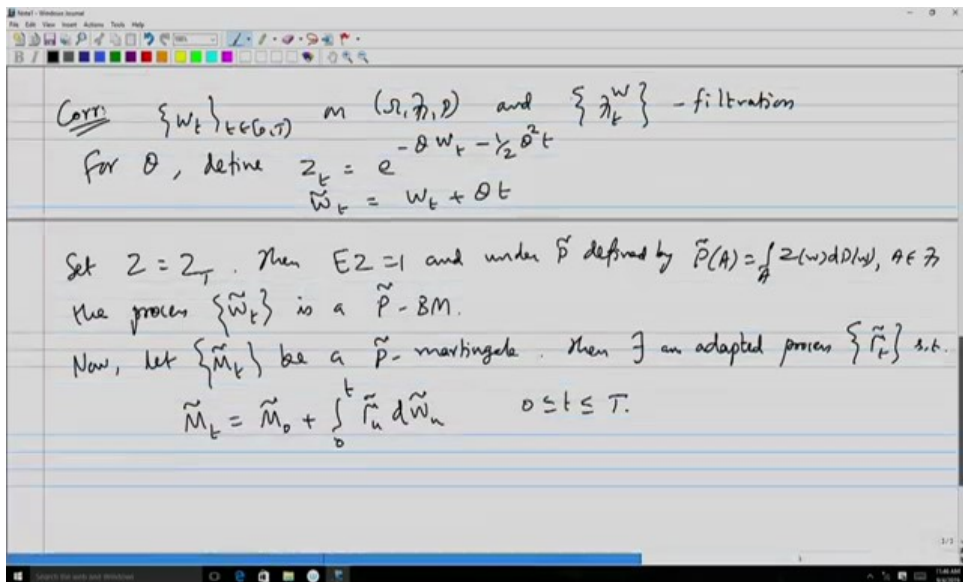 Note1 - Windows Journal
File Edit View Insert Actions Tools Help
B I
Corr: {W_t}_{t∈[0,T]} on (Ω, ℱ, P) and {ℱ_t^W} - filtration
For θ, define Z_t = e^{-θ W_t - 1/2 θ² t}
W̃_t = W_t + θ t
Set Z = Z_T. Then EZ = 1 and under P̃ defined by P̃(A) = ∫_A Z(ω) dP(ω), A ∈ ℱ
the process {W̃_t} is a P̃ - BM.
Now, let {M̃_t} be a P̃ - martingale. Then ∃ an adapted process {Γ̃_t} s.t.
M̃_t = M̃_0 + ∫_0^t Γ̃_u dW̃_u 0 ≤ t ≤ T.
Search the web and Windows